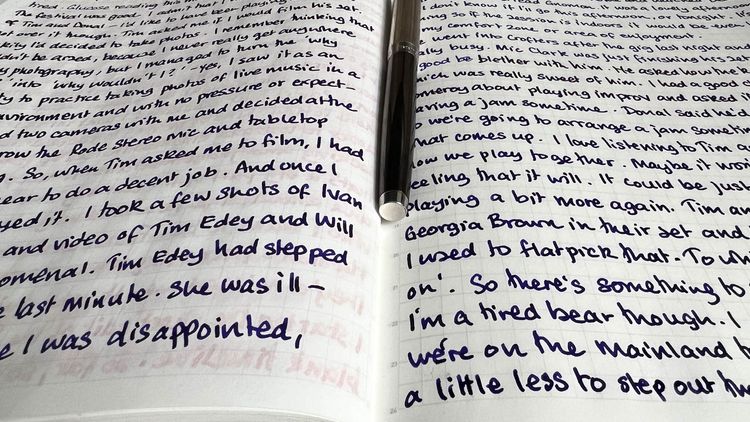 tired. Glucose reading this m
The festival was good. I admit that I
of Tim and Donal. I'd like to have been playing
get over it though. Tim asked me if I would film his set.
kit y I'd decided to take photos. I remember thinking that
dn't be arsed, because I never really get anywhere
y photography, but I managed to turn the 'why
' into 'why wouldn't I?'. Yes, I saw it as an
ty to practice taking photos of live music in a
vironment and with no pressure or expect-
d two cameras with me and decided at the
row the Rode Stereo Mic and tabletop
g. So, when Tim asked me to film, I had
ear to do a decent job. And once I
yed it. I took a few shots of Ivan
and video of Tim Edey and Will
omenal. Tim Edey had stepped
e last minute. She was ill –
e I was disappointed,
don't know
ng so if the session is indoors it would be out
my comfort zone, or area of enjoyment.
I went into Crofters after the gig last night and
ally busy. Mic Clark was just finishing his set
good be blether with him. He asked how the h
hich was really sweet of him. I had a good
omeroy about playing improv and asked
aving a jam sometime. Donal said he'd
o we're going to arrange a jam sometim
that comes up. I love listening to Tim a
how we play together. Maybe it won
feeling that it will. It could be just
playing a bit more again. Tim an
Georgia Brown in their set and
I used to flatpick that. To wh
on'. So there's something to
I'm a tired bear though. I
we're on the mainland t
a little less to step out tw